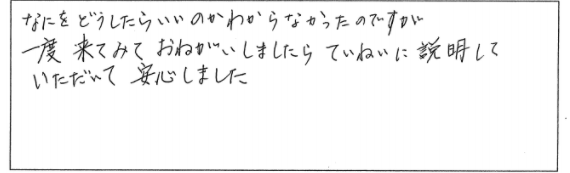 なにをどうしたらいいのかわからなかったのですが
一度 来てみて おねがいしましたら ていねいに 説明して
いただいて 安心しました